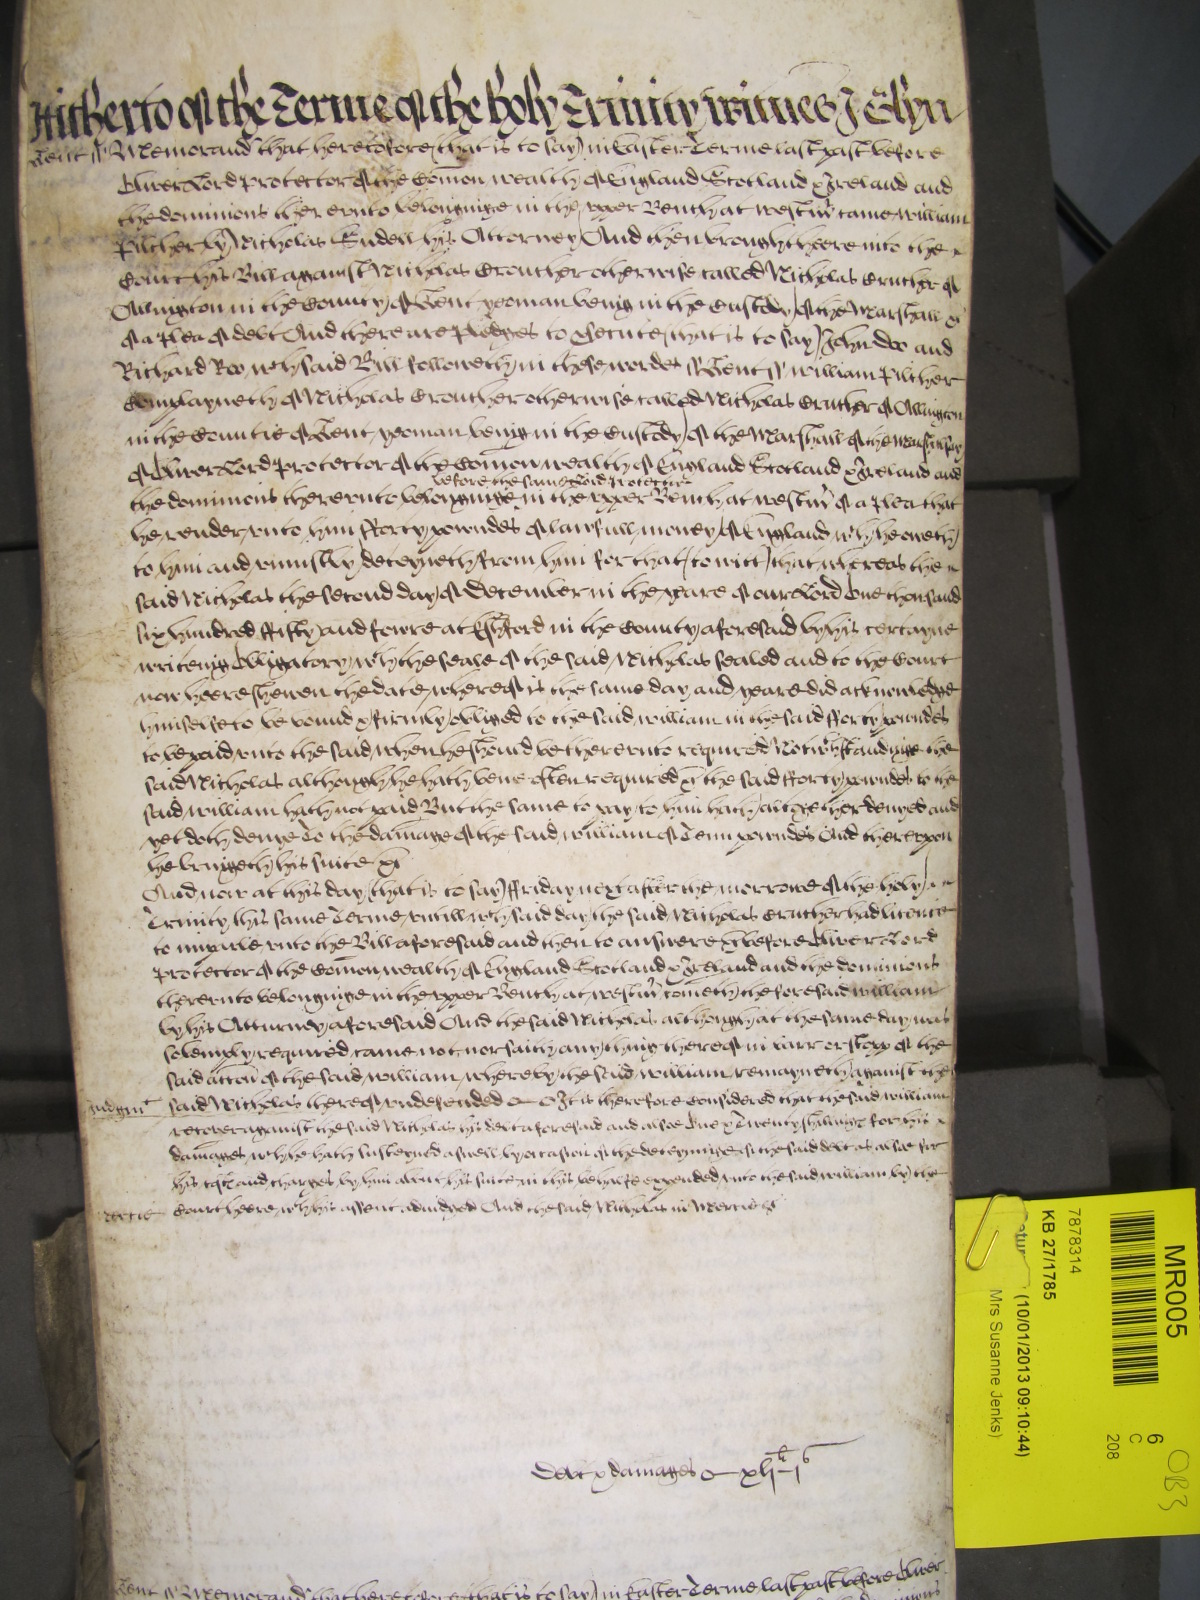 Hitherto of the Terme of the holy Trinity witnes J Glyn
Kent ss Memorand that heretofore (that is to say) in Easter Terme last past before
Oliver Lord Protector of the Comon wealth of England Scotland & Ireland and
the dominions thereunto belonginge in the upper Bench at Westmr came William
Pilcher by Nicholas Endell his Attorney And then brought heere into the
Court his Bill against Nicholas Crouther otherwise called Nicholas Cruther of
Ollington in the County of Kent yeoman being in the Custody of the Marshall &c
of a Plea of debt And there are Pledges to prosecute (that is to say) John Doo and
Richard Roo wch said Bill followeth in these wordes ss Kent ss William Pilcher
Complayneth of Nicholas Crouther otherwise called Nicholas Cruther of Ollington
in the Countie of Kent yeoman being in the Custody of the Marshall of the Marshalsey
of Oliver Lord Protector of the Comon wealth of England Scotland & Ireland and
before the same Lord Protector
the dominions thereunto belonginge in the upper Bench at Westmr of a Plea that
he render unto him fforty powndes of lawfull money of England wch he oweth
to him and uniustly deteyneth from him for that (to witt) that whereas the
said Nicholas the second day of December in the yeare of our Lord One thousand
six hundred ffifty and fowre at Ashford in the County aforesaid by his certayne
writeing Obligatory wth the seale of the said Nicholas sealed and to the Court
now heere shewen the date whereof is the same day and yeare did acknowledge
himselfe to be bound & firmly obliged to the said William in the said fforty powndes
to be paid unto the said when he should be thereunto required Notwthstandinge the
said Nicholas although he hath bene often required &c the said fforty powndes to the
said William hath not paid But the same to pay to him hath altogether denyed and
yet doth denye To the damage of the said William of Tenn powndes And thereupon
he bringeth his suite &c
And now at this day (that is to say) ffriday next after the morrowe of the holy
Trinity this same Terme untill wch said day the said Nicholas Cruther had licence
to imparle unto the Bill aforesaid and then to answere &c before Oliver Lord
Protector of the Comon wealth of England Scotland & Ireland and the dominions
thereunto belonginge in the upper Bench at Westmr cometh the foresaid William
by his Atturney aforesaid And the said Nicholas although at the same day was
solemply required came not nor saith any thing thereof in barr or stopp of the
said accon of the said William whereby the said William remayneth against the
Judgmt said Nicholas thereof undefended It is therefore Considered that the said William
recover against the said Nicholas his debt aforesaid and alsoe One & Twenty shillinges for his
damages wch he hath susteyned aswell by occasion of the deteyninge of the said debt as alsoe for
his costs and charges by him about his suite in this behalfe expended unto the said William by the
mercie Court heere wth his assent adiudged And the said Nicholas in Mercie &c
Debt & damages xlj li j s
Kent ss Memorand that heretofore (that is to say) in Easter Terme last past before Oliver
MR005
7878314
KB 27/1785
(10/01/2013 09:10:44)
Mrs Susanne Jenks)
6
C
208
OB3